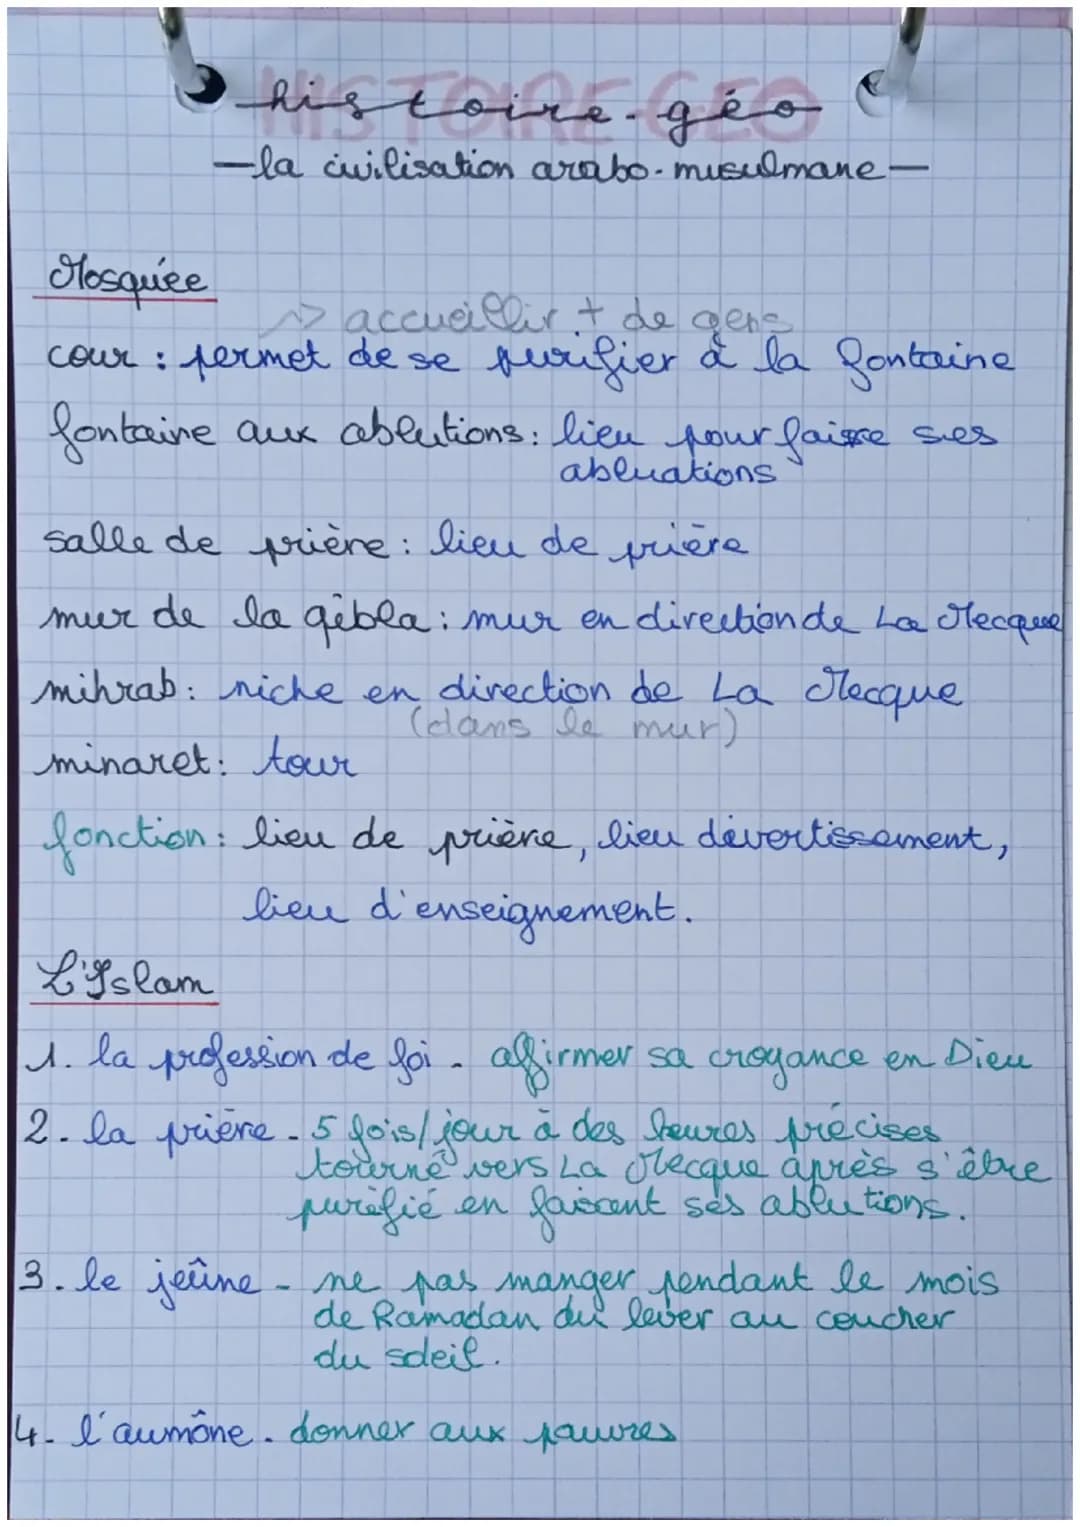 HISTOIRE-GÉO
histoire-géo
—la civilisation arabo-musulmane—
Mosquée
-> accueillir + de gens
cour : permet de se purifier à la fontaine
fontaine aux ablutions : lieu pour faire ses
abluations
salle de prière : lieu de prière
mur de la qibla : mur en direction de La Mecque
mihrab : niche en direction de La Mecque
(dans le mur)
minaret : tour
fonction : lieu de prière, lieu divertissement,
lieu d'enseignement.
L'Islam
1. la profession de foi - affirmer sa croyance en Dieu
2. la prière - 5 fois/jour à des heures précises
tourné vers La Mecque après s'être
purifié en faisant ses ablutions.
3. le jeûne - ne pas manger pendant le mois
de Ramadan du lever au coucher
du soleil.
4. l'aumône - donner aux pauvres